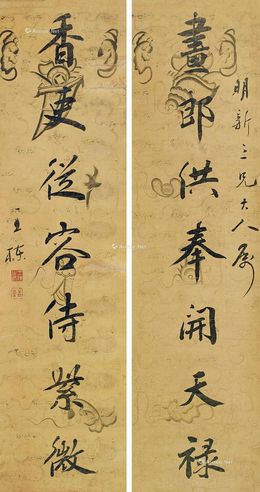 畫郎供奉開天祿
明新三兄大人屬
香吏從容侍紫微
王棟